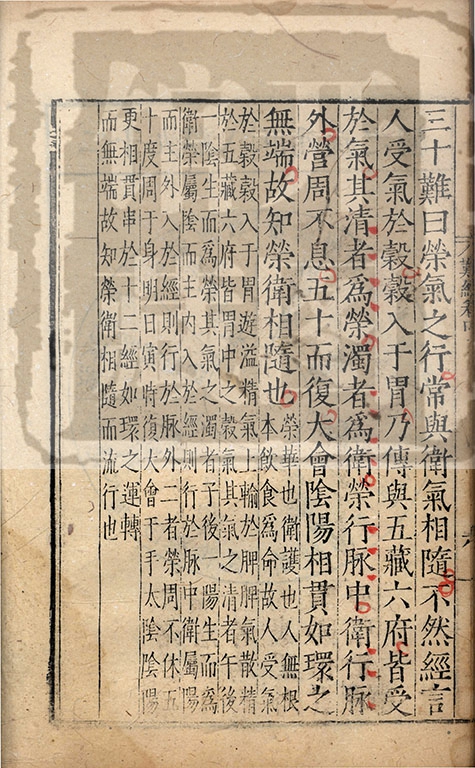 三十難曰榮氣之行常與衛氣相隨不然經言
人受氣於穀穀入于胃乃傳與五藏六府皆受
於氣其清者爲榮濁者爲衛榮行脉中衛行脉
外營周不息五十而復大會陰陽相貫如環之
無端故知榮衛相隨也
榮華也衛護也人無根
本飲食爲命故人受氣
於穀穀入于胃遊溢精氣上輸於脾脾氣散精
於五藏六府皆胃中之穀氣其氣之清者午後
一陰生而爲榮其氣之濁者子後一陽生而爲
衛榮屬陰而主内入於經則行於脉中衛屬陽
而主外入於經則行於脉外二者榮周不休五
十度周于身明日寅時復大會于手太陰陰陽
更相貫串於十二經如環之運轉
而無端故知榮衛相隨而流行也